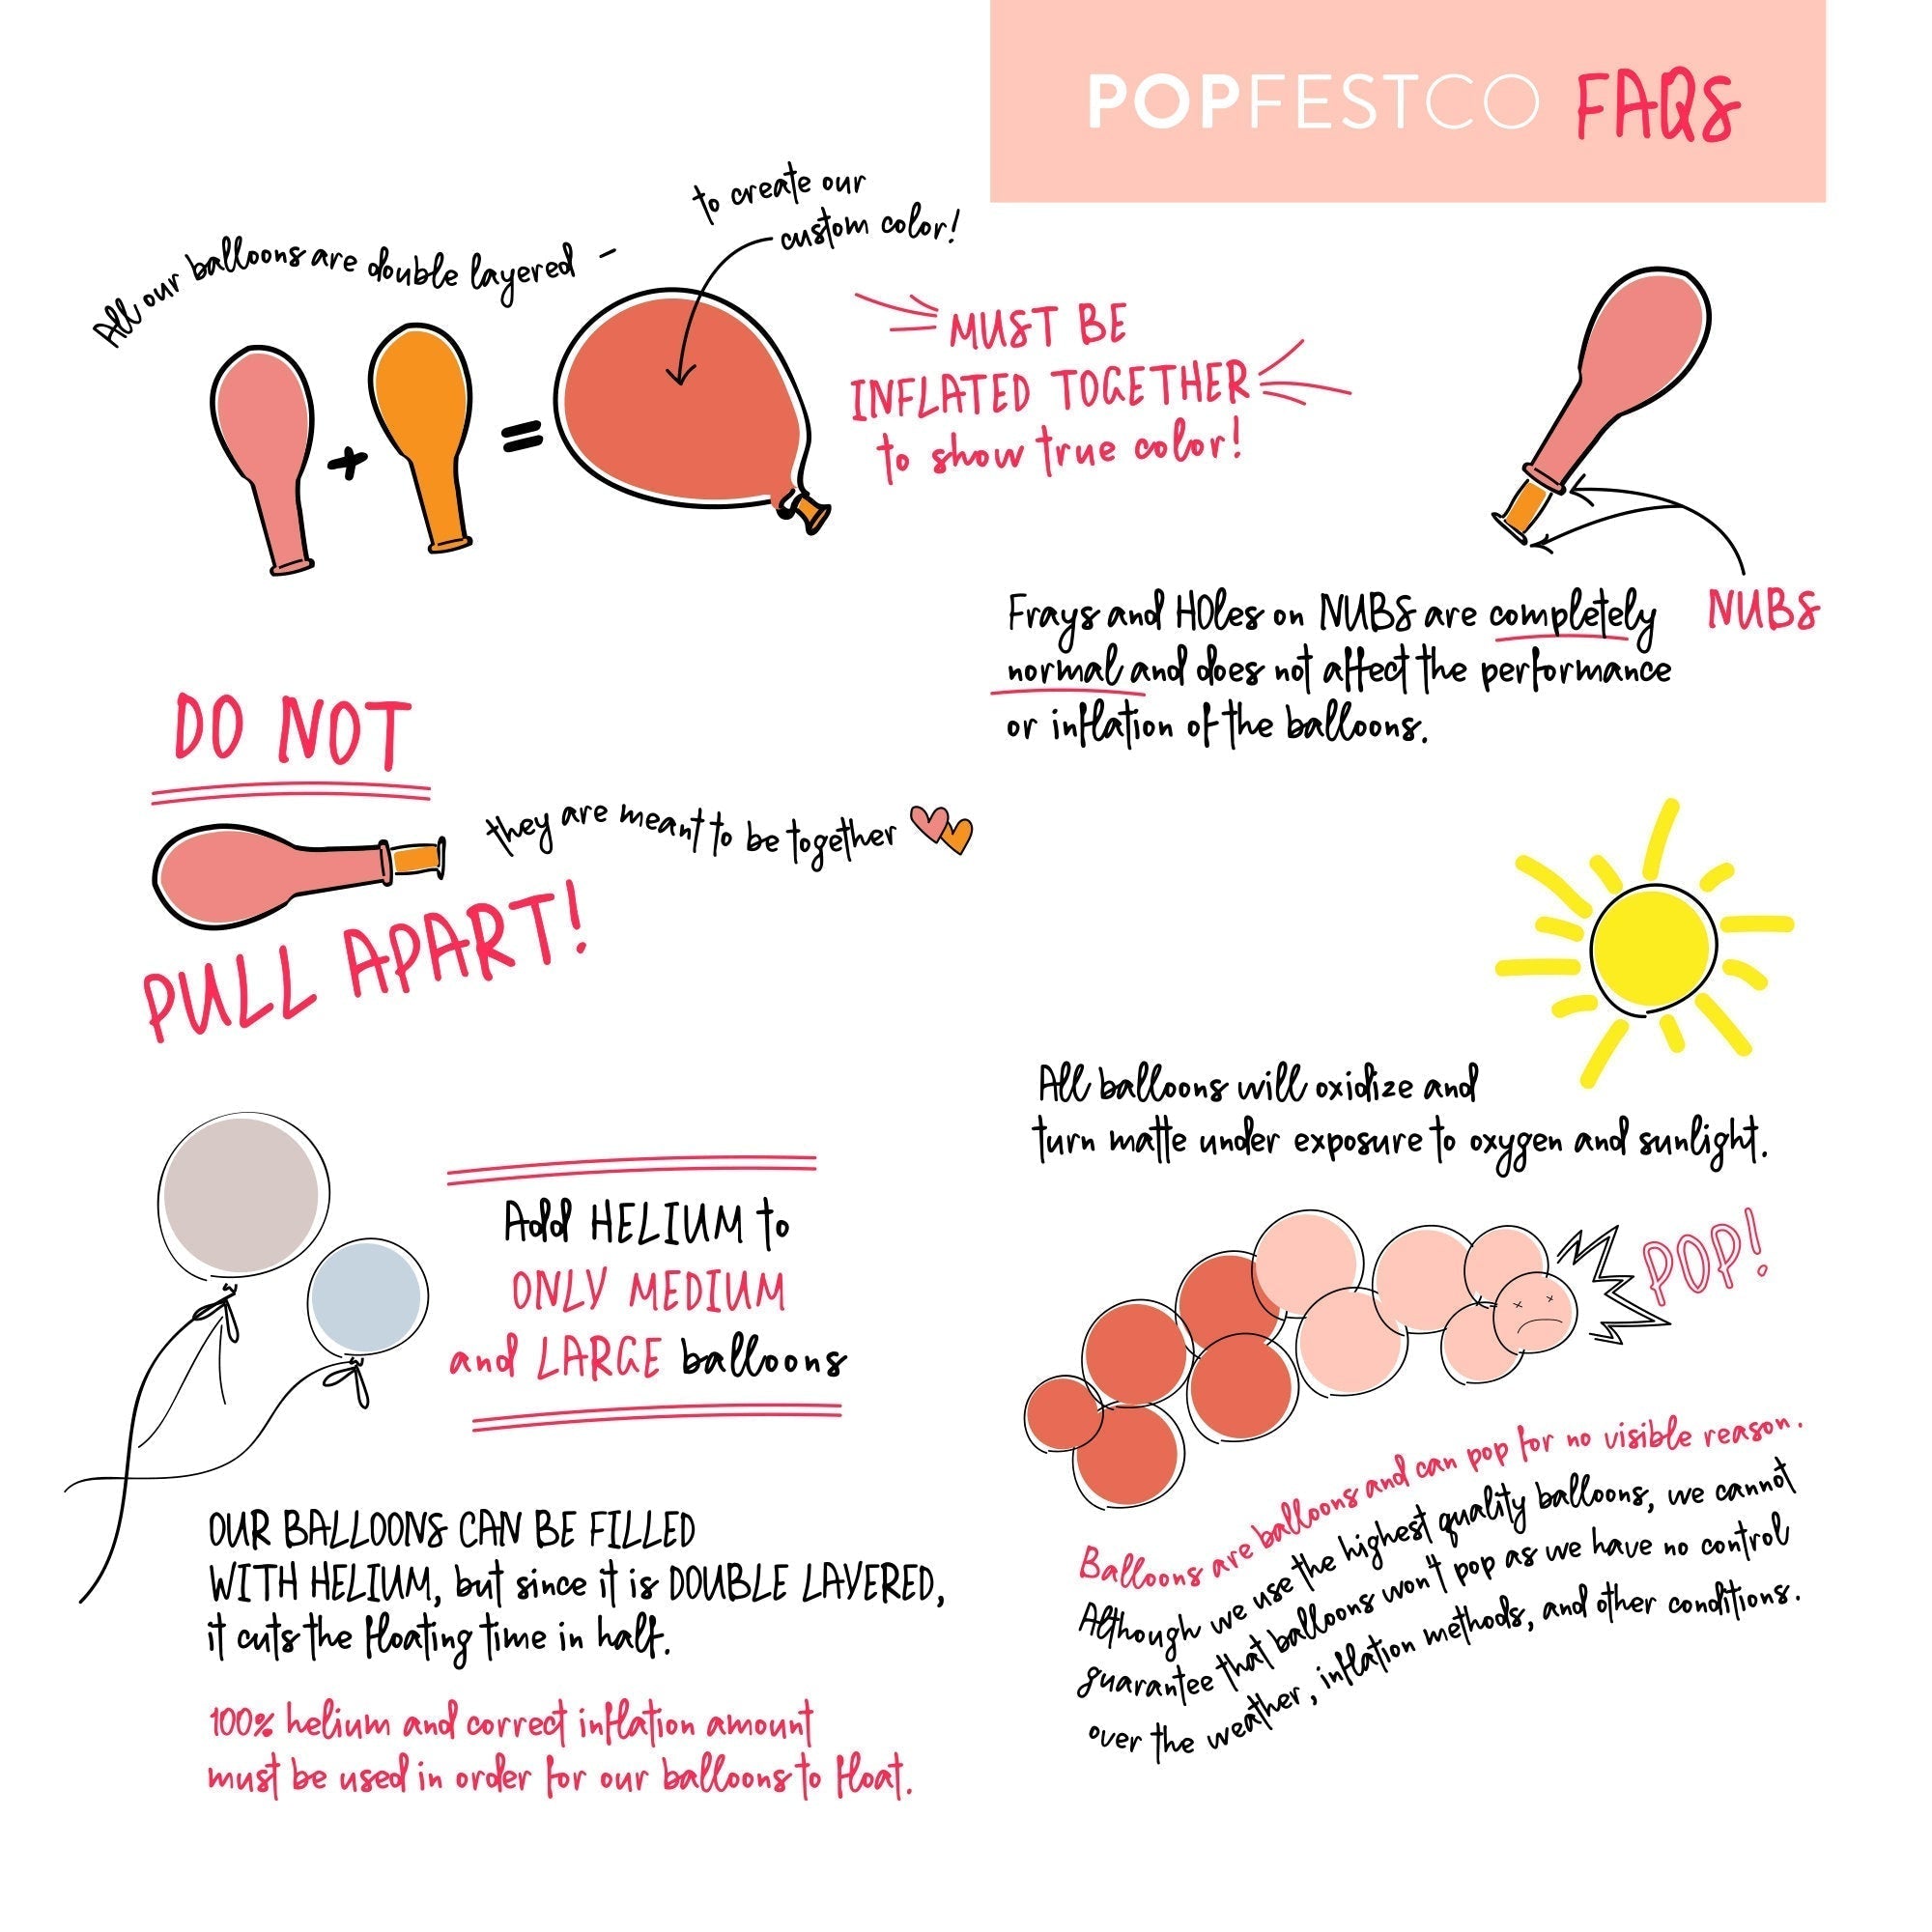 POPFESTCO FAQS
All our balloons are double layered -
to create our
custom color!
MUST BE
INFLATED TOGETHER
to show true color!
NUBS
Frays and HOles on NUBS are completely
normal and does not affect the performance
or inflation of the balloons.
DO NOT
they are meant to be together
PULL APART!
All balloons will oxidize and
turn matte under exposure to oxygen and sunlight.
Add HELIUM to
ONLY MEDIUM
and LARGE balloons
OUR BALLOONS CAN BE FILLED
WITH HELIUM, but since it is DOUBLE LAYERED,
it cuts the floating time in half.
100% helium and correct inflation amount
must be used in order for our balloons to float.
POP!
Balloons are balloons and can pop for no visible reason.
Although we use the highest quality balloons, we cannot
guarantee that balloons won't pop as we have no control
over the weather, inflation methods, and other conditions.